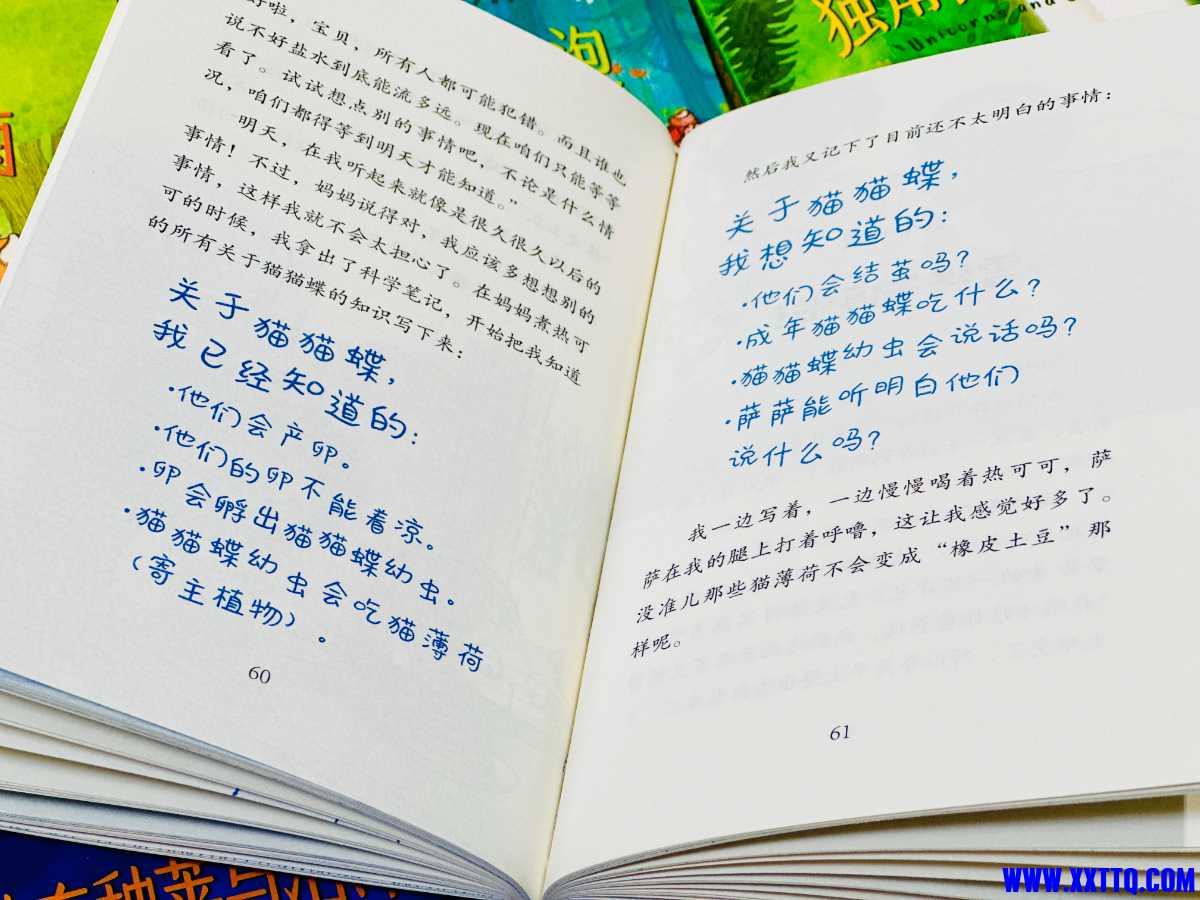 独角
Unicorns and
泡
好啦，宝贝，所有人都可能犯错。而且谁也
说不好盐水到底能流多远。现在咱们只能等等
看了。试试想点别的事情吧，不论是什么情
况，咱们都得等到明天才能知道。”
明天，在我听起来就像是很久很久以后的
事情！不过，妈妈说得对，我应该多想想别的
事情，这样我就不会太担心了。在妈妈煮热可
可的时候，我拿出了科学笔记，开始把我知道
的所有关于猫猫蝶的知识写下来：
关于猫猫蝶，
我已经知道的：
·他们会产卵。
·他们的卵不能着凉。
·卵会孵出猫猫蝶幼虫。
·猫猫蝶幼虫会吃猫薄荷
（寄主植物）。
60
然后我又记下了目前还不太明白的事情：
关于猫猫蝶，
我想知道的：
·他们会结茧吗？
·成年猫猫蝶吃什么？
·猫猫蝶幼虫会说话吗？
·萨萨能听明白他们
说什么吗？
我一边写着，一边慢慢喝着热可可，萨
萨在我的腿上打着呼噜，这让我感觉好多了。
没准儿那些猫薄荷不会变成“橡皮土豆”那
样呢。
61
WWW.XXTTQ.COM